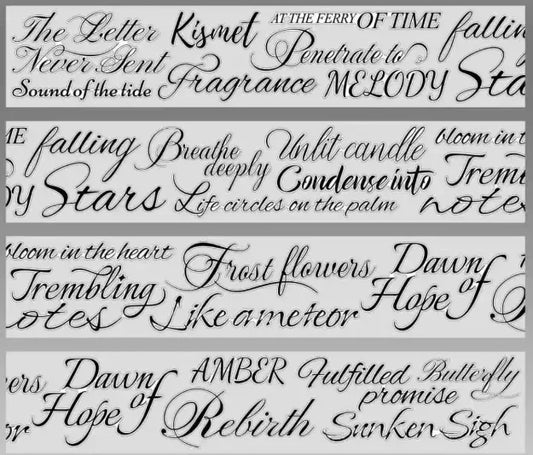 The Letter Never Sent
Kismet
AT THE FERRY OF TIME
falling
Sound of the tide
Fragrance
Penetrate to
MELODY
Sta
ME
falling
Breathe deeply
Unlit candle
bloom in t
DY
Stars
Life circles on the palm
Condense into
Trem
notes
bloom in the heart
Trembling
otes
Frost flowers
Like a meteor
Dawn
Hope of
ers
Dawn
Hope of
AMBER
Rebirth
Fulfilled
promise
Butterfly
Sunken Sigh
or